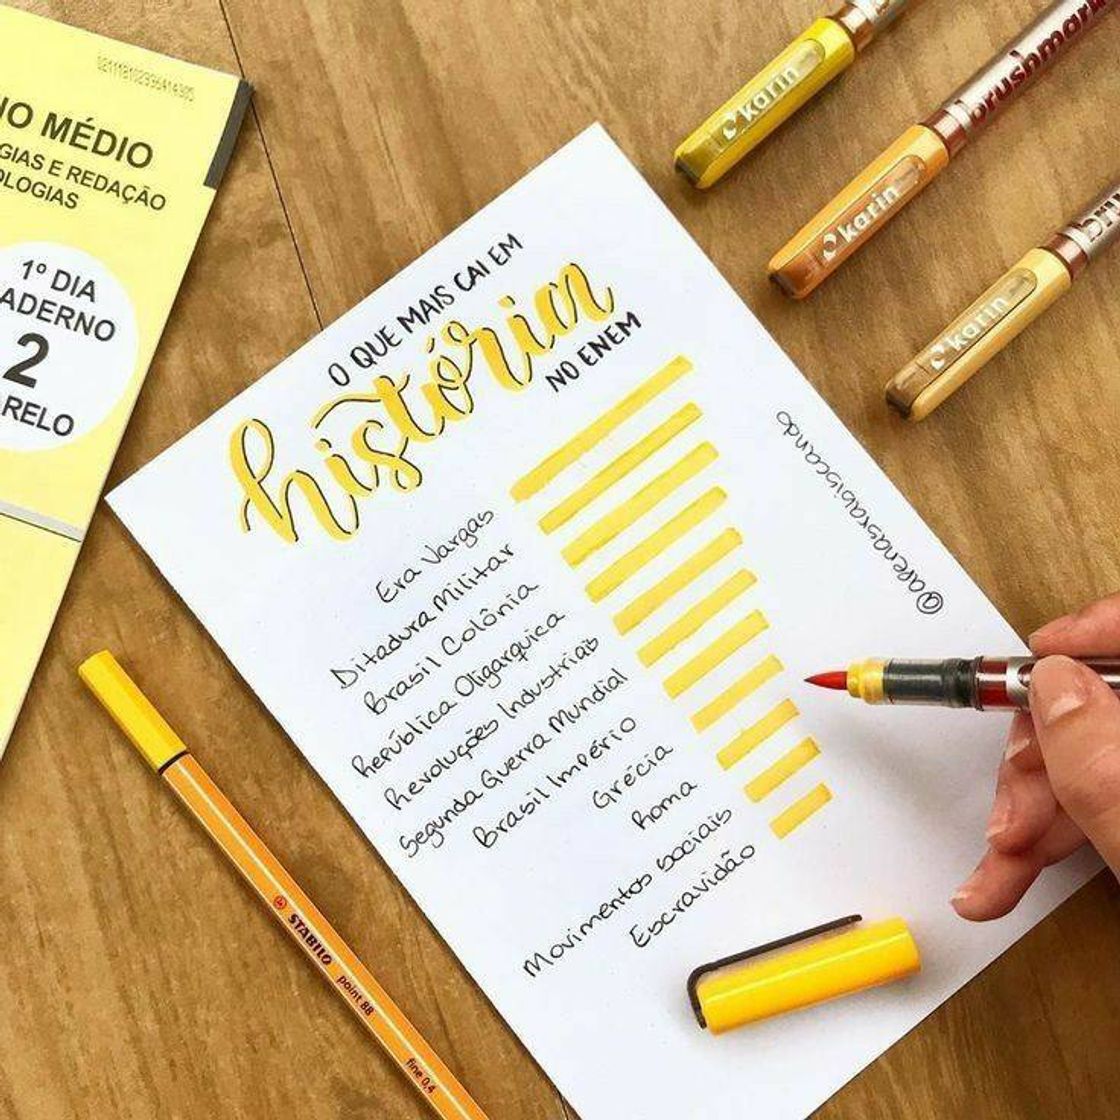 021118102995414305
IO MÉDIO
GIAS E REDAÇÃO
OLOGIAS
1º DIA
ADERNO
2
RELO
O QUE MAIS CAI EM
história
NO ENEM
Era Vargas
Ditadura Militar
Brasil Colônia
República Oligarquica
Revoluções Industriais
Segunda Guerra Mundial
Brasil Império
Grécia
Roma
Movimentos sociais
Escravidão
@apenasrabiscando
karin
karin
brushmark
karin
STABILO point 88 fine 0,4